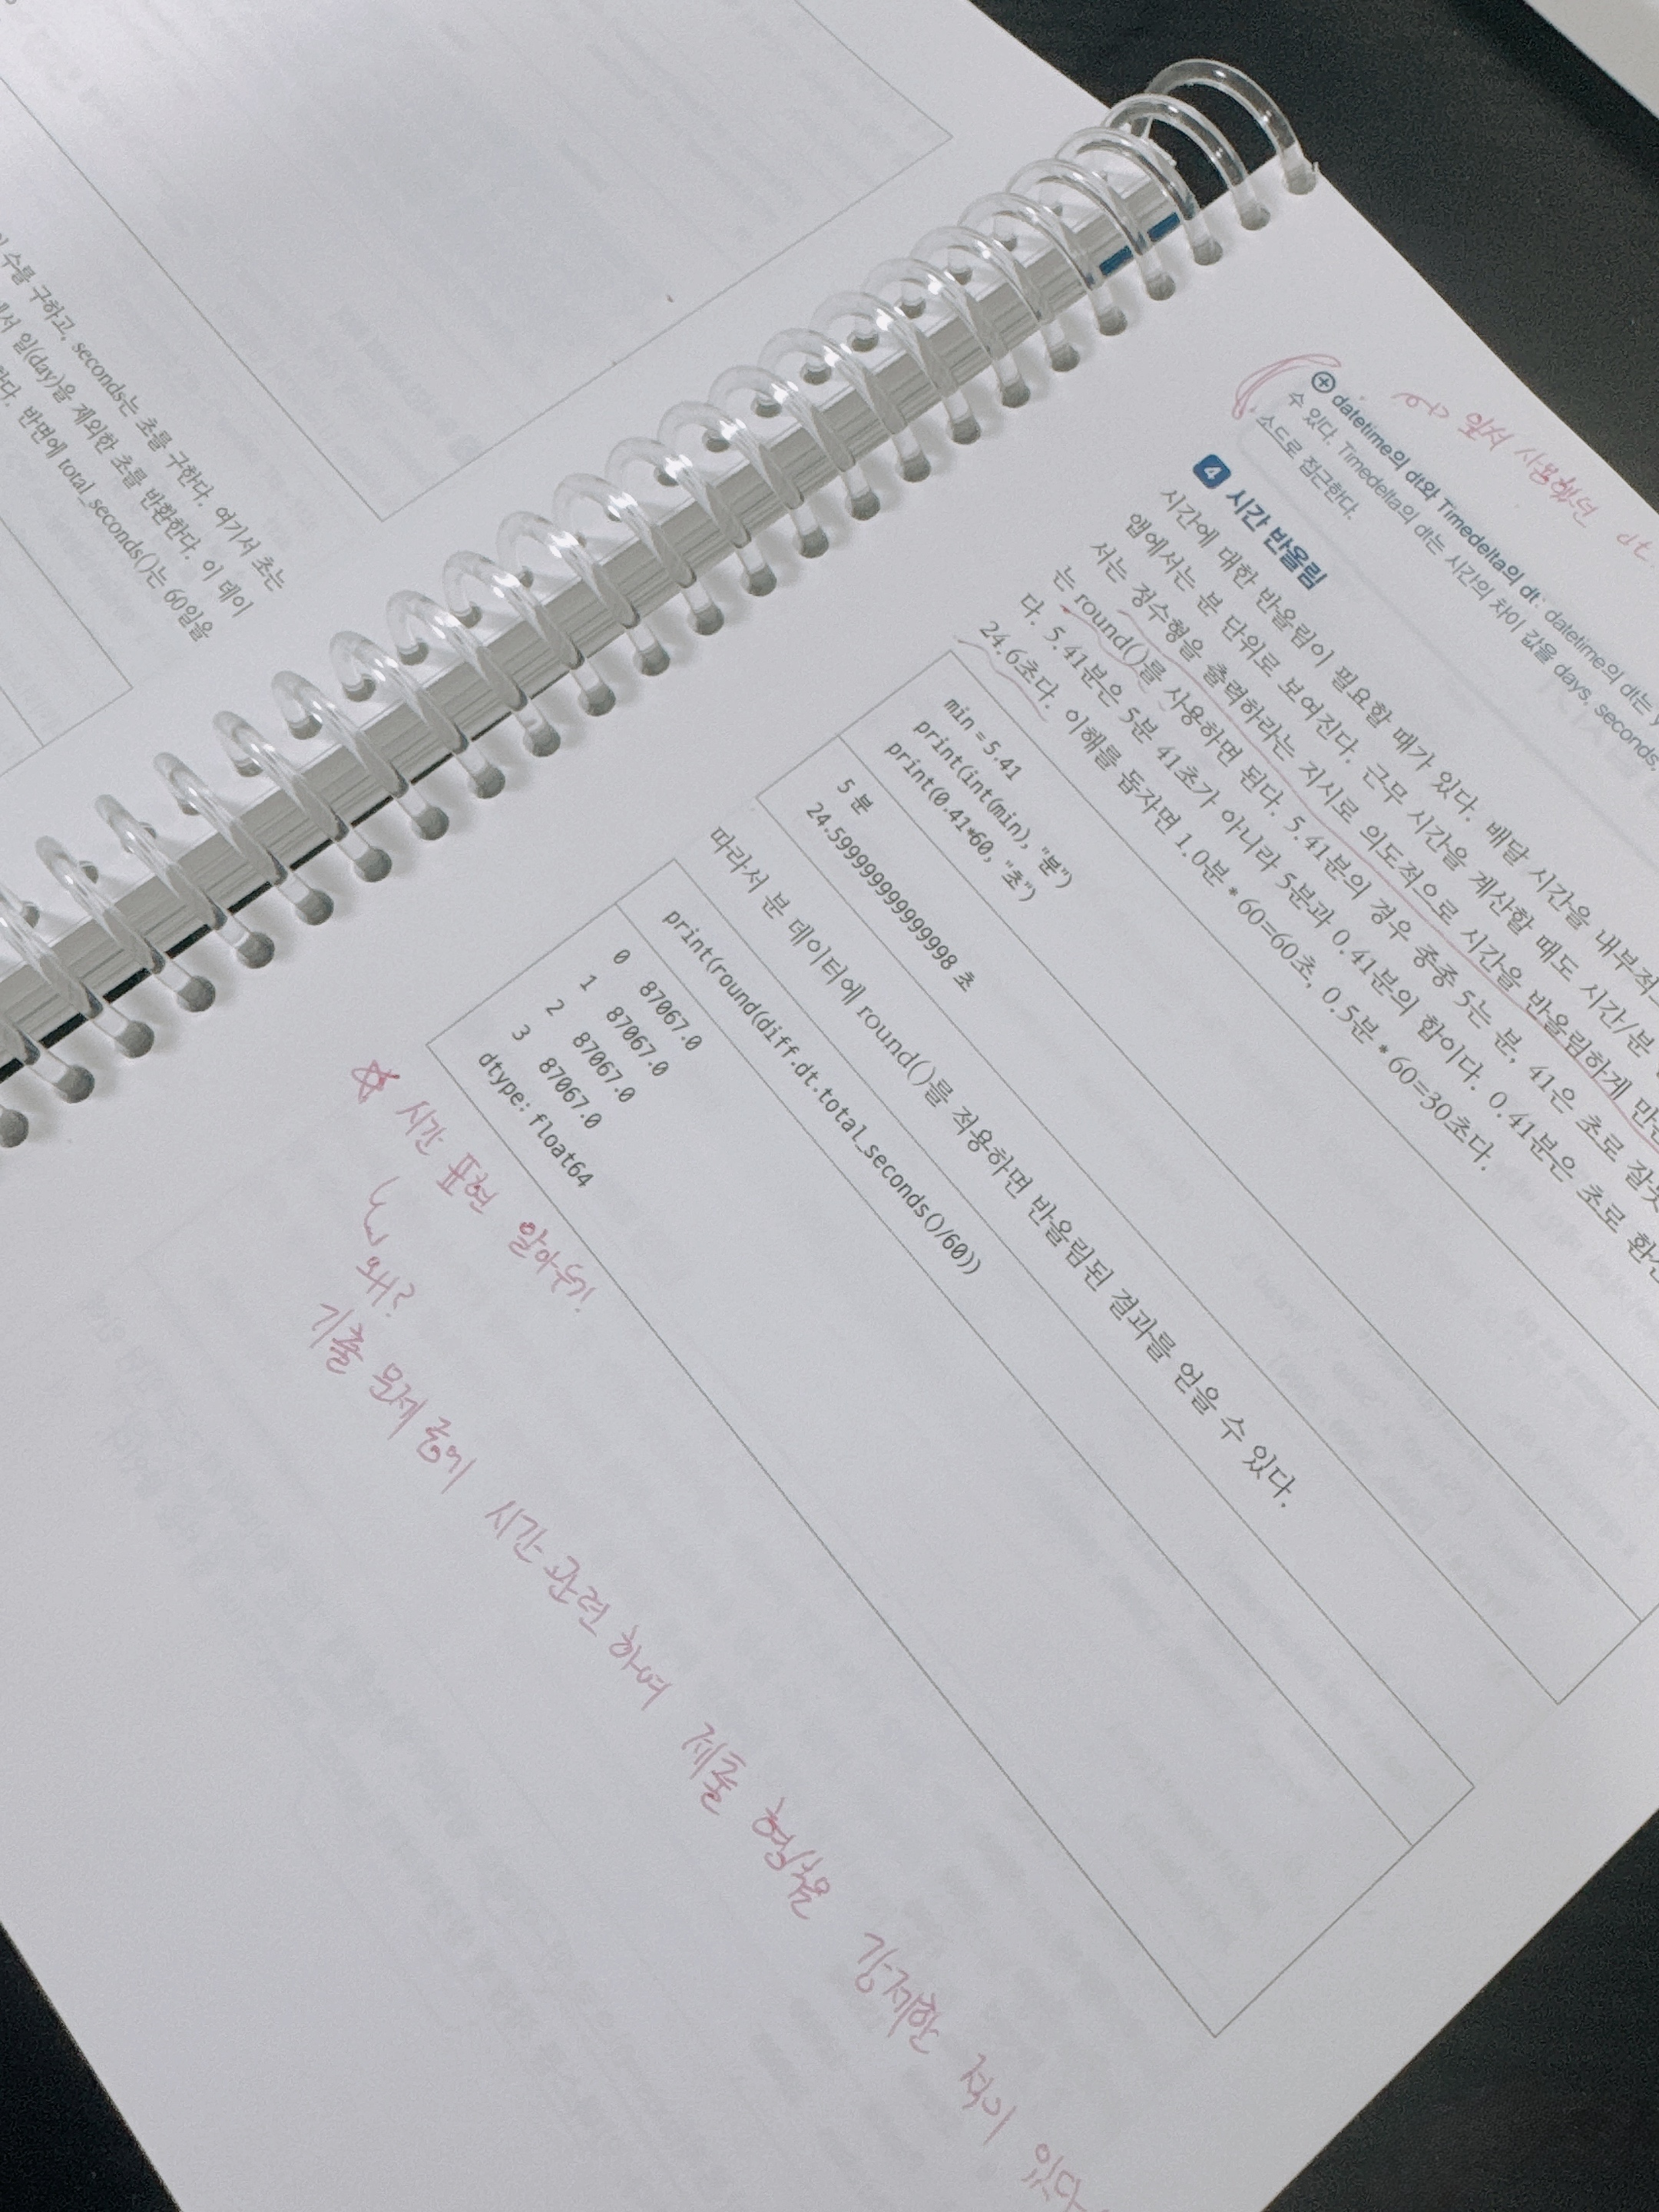 수를 구하고, seconds는 초를 구한다. 여기서 초는
서 일(day)을 제외한 초를 반환한다. 이 데이
다. 반면에 total_seconds()는 60일을
앞서 사용했던 dt.
⊕ datetime의 dt와 Timedelta의 dt: datetime의 dt는 y
수 있다. Timedelta의 dt는 시간의 차이 값을 days, seconds,
소드로 접근한다.
4 시간 반올림
시간에 대한 반올림이 필요할 때가 있다. 배달 시간을 내부적으
앱에서는 분 단위로 보여진다. 근무 시간을 계산할 때도 시간/분
서는 정수형을 출력하라는 지시로 의도적으로 시간을 반올림하게 만든
는 round()를 사용하면 된다. 5.41분의 경우 종종 5는 분, 41은 초로 잘못
다. 5.41분은 5분 41초가 아니라 5분과 0.41분의 합이다. 0.41분은 초로 환산
24.6초다. 이해를 돕자면 1.0분 * 60=60초, 0.5분 * 60=30초다.
min = 5.41
print(int(min), "분")
print(0.41*60, "초")
5 분
24.599999999999998 초
따라서 분 데이터에 round()를 적용하면 반올림된 결과를 얻을 수 있다.
print(round(diff.dt.total_seconds()/60))
0 87067.0
1 87067.0
2 87067.0
3 87067.0
dtype: float64
☆ 시간 표현 알아두기!
왜?
기출 문제 중에 시간 관련 하여 제출 형식을 강제한 적이 있다